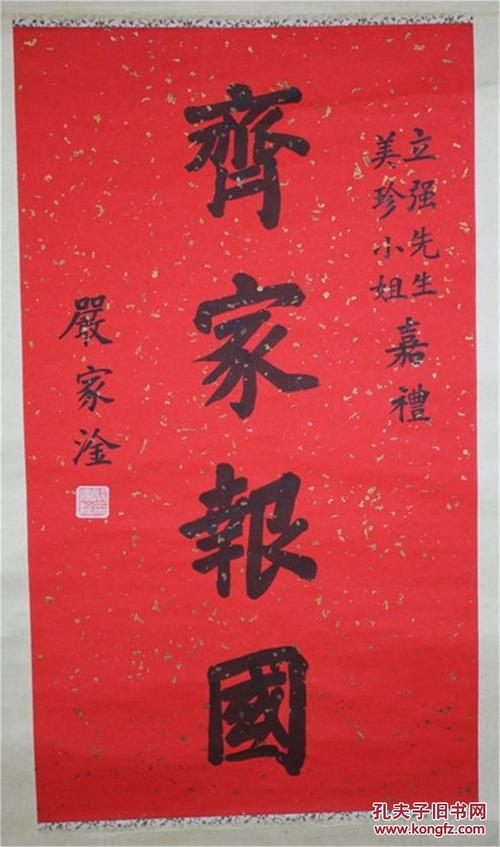 立强先生
美珍小姐
嘉禮
齊家報國
嚴家淦
孔夫子旧书网
www.kongfz.com